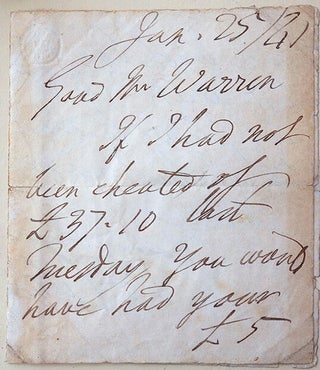 Jan. 25/41
Good Mr Warren
If I had not
been cheated of
£37-10 last
Tuesday you would
have had your
£5